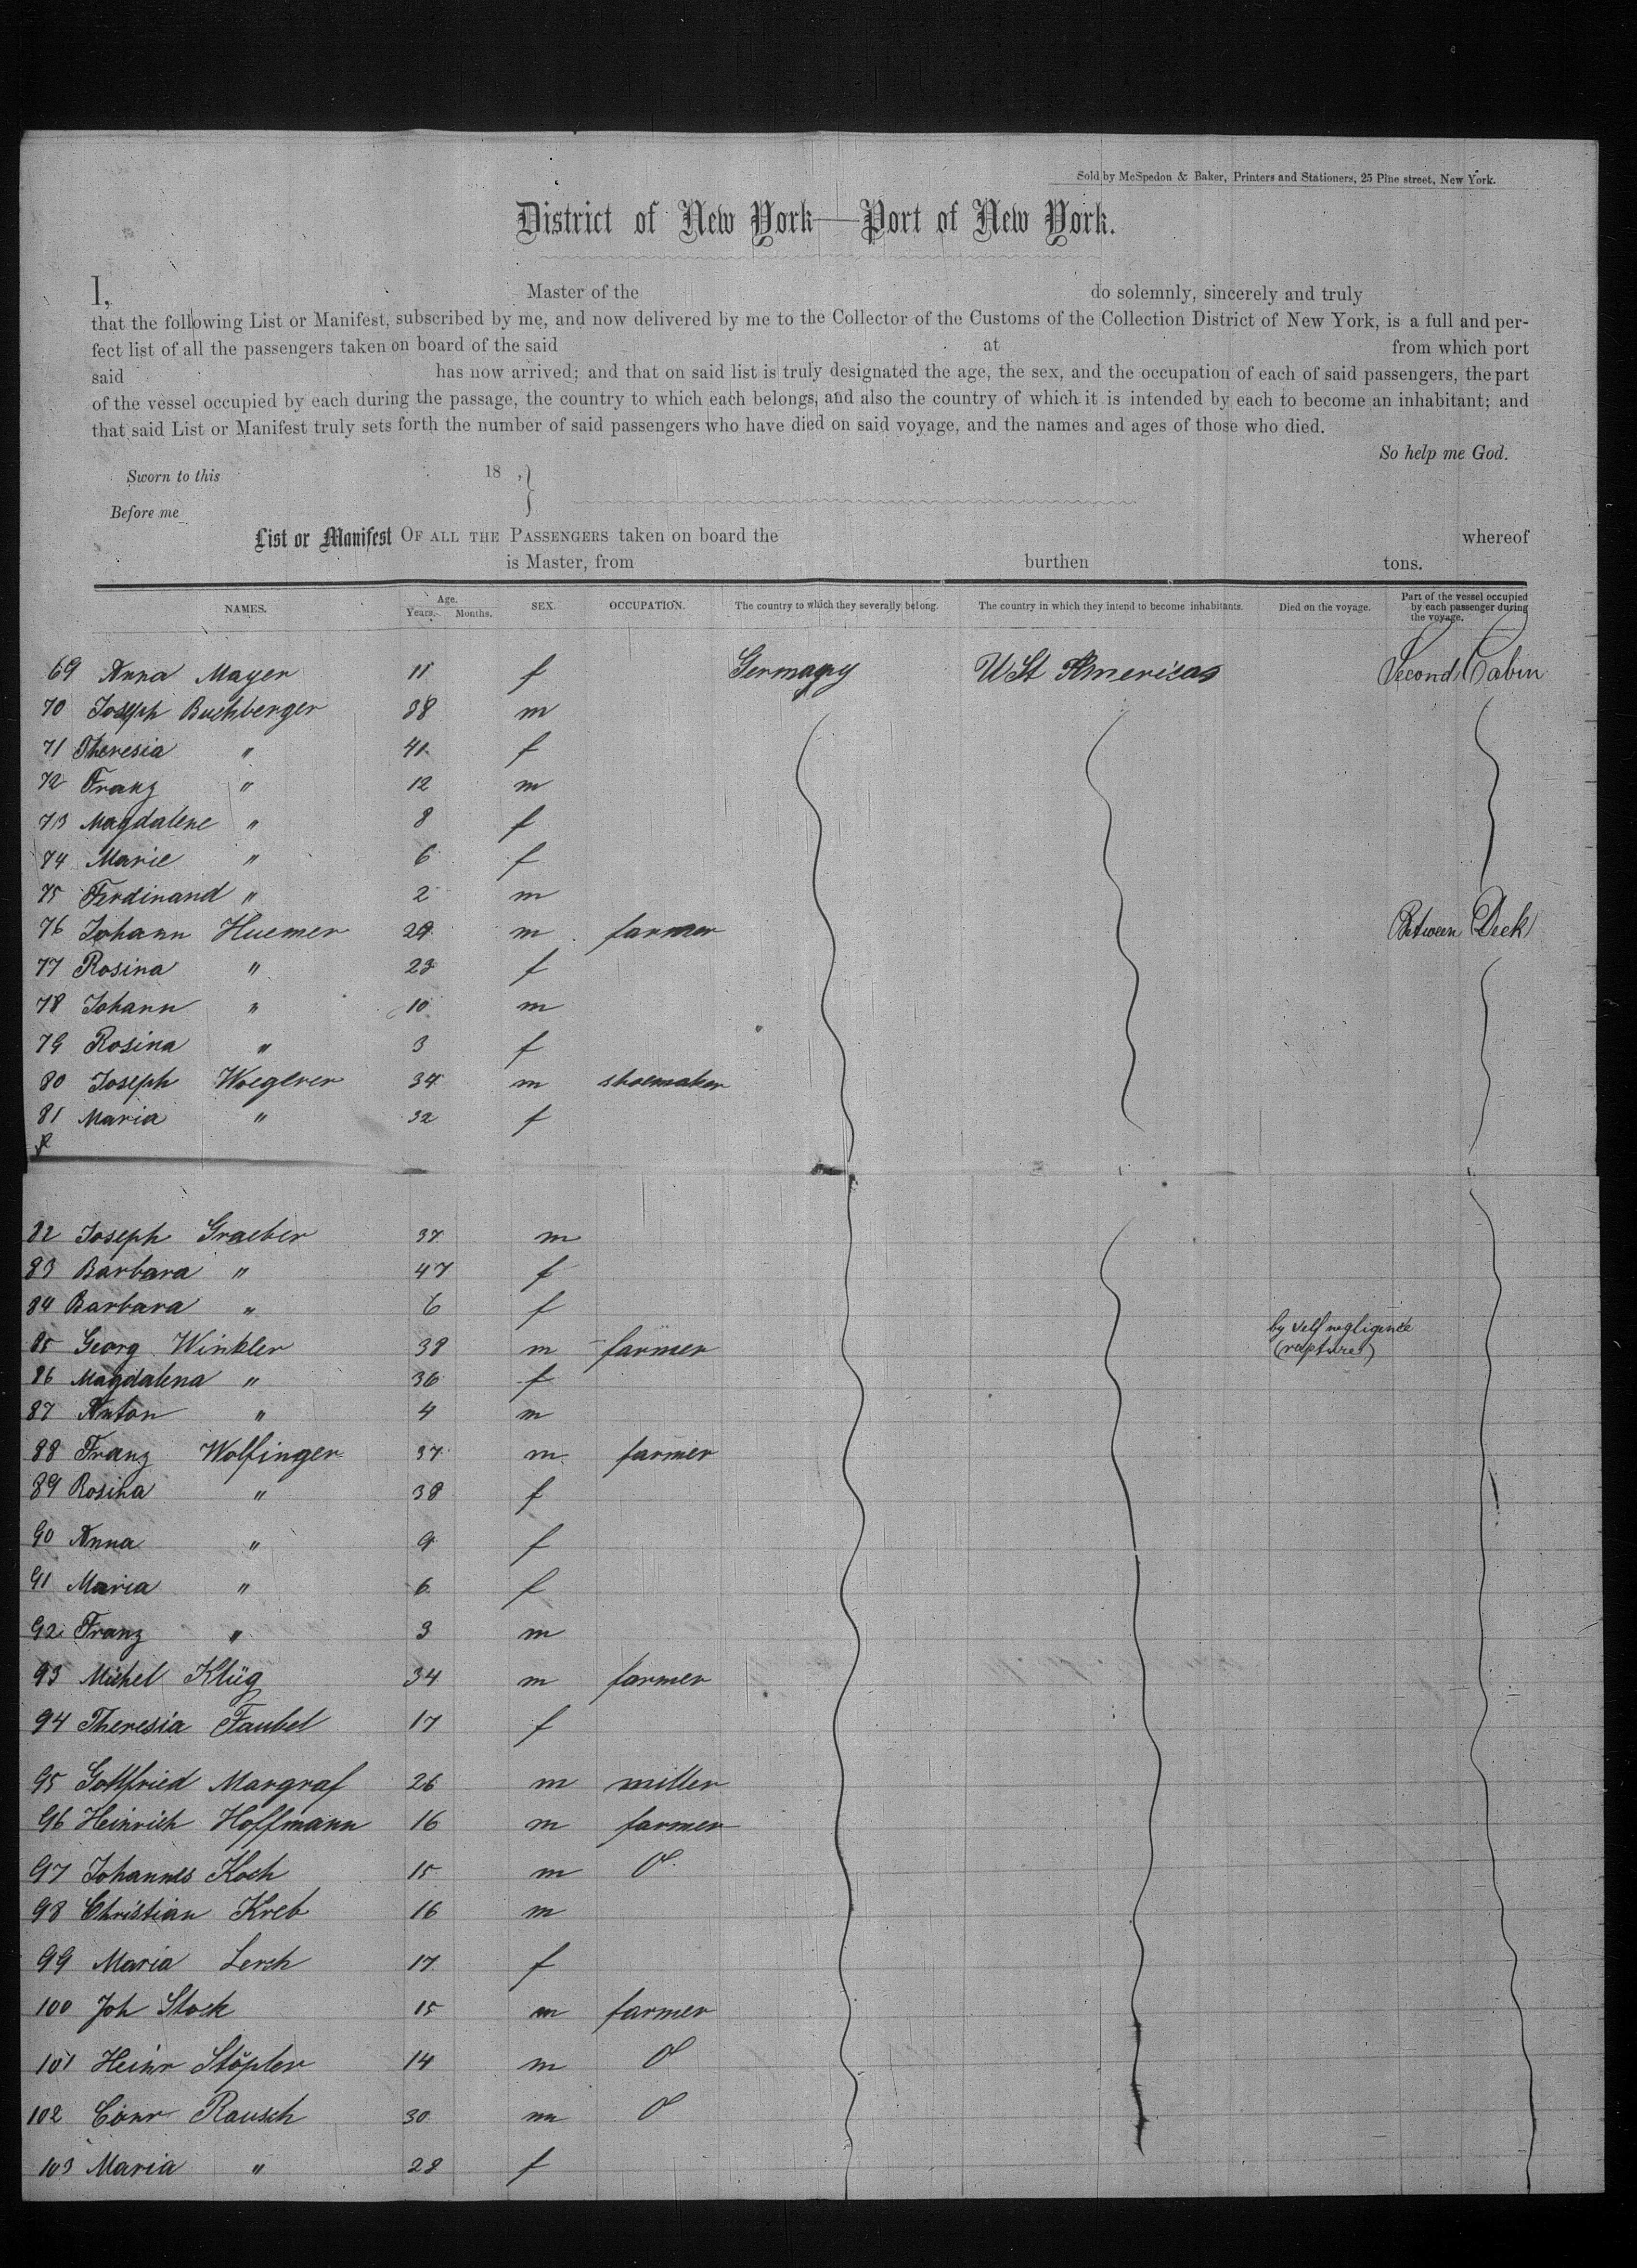 Sold by McSpedon & Baker, Printers and Stationers, 25 Pine street, New York.
District of New York—Port of New York.
I, Master of the do solemnly, sincerely and truly
that the following List or Manifest, subscribed by me, and now delivered by me to the Collector of the Customs of the Collection District of New York, is a full and per-
fect list of all the passengers taken on board of the said at from which port
said has now arrived; and that on said list is truly designated the age, the sex, and the occupation of each of said passengers, the part
of the vessel occupied by each during the passage, the country to which each belongs, and also the country of which it is intended by each to become an inhabitant; and
that said List or Manifest truly sets forth the number of said passengers who have died on said voyage, and the names and ages of those who died.
So help me God.
Sworn to this 18 ,
Before me
List or Manifest OF ALL THE PASSENGERS taken on board the whereof
is Master, from burthen tons.
NAMES. Age. Years. Months. SEX. OCCUPATION. The country to which they severally belong. The country in which they intend to become inhabitants. Died on the voyage. Part of the vessel occupied by each passenger during the voyage.
69 Anna Mayer 11 f Germany U St Americas Second Cabin
70 Joseph Buchberger 38 m
71 Theresia " 41 f
72 Franz " 12 m
73 Magdalene " 8 f
74 Marie " 6 f
75 Ferdinand " 2 m
76 Johann Huemer 29 m farmer Between Deck
77 Rosina " 23 f
78 Johann " 10 m
79 Rosina " 3 f
80 Joseph Woegerer 34 m shoemaker
81 Maria " 32 f
82 Joseph Graeber 37 m
83 Barbara " 47 f
84 Barbara " 6 f
85 Georg Winkler 38 m farmer by self negligence (rupture)
86 Magdalena " 36 f
87 Anton " 4 m
88 Franz Wolfinger 37 m farmer
89 Rosina " 38 f
90 Anna " 9 f
91 Maria " 6 f
92 Franz " 3 m
93 Michel Klüg 34 m farmer
94 Theresia Faubel 17 f
95 Gottfried Margraf 26 m miller
96 Heinrich Hoffmann 16 m farmer
97 Johannes Koch 15 m
98 Christian Kreb 16 m
99 Maria Lersh 17 f
100 Joh Stock 15 m farmer
101 Heinr Stöpler 14 m
102 Conr Rausch 30 m
103 Maria " 28 f